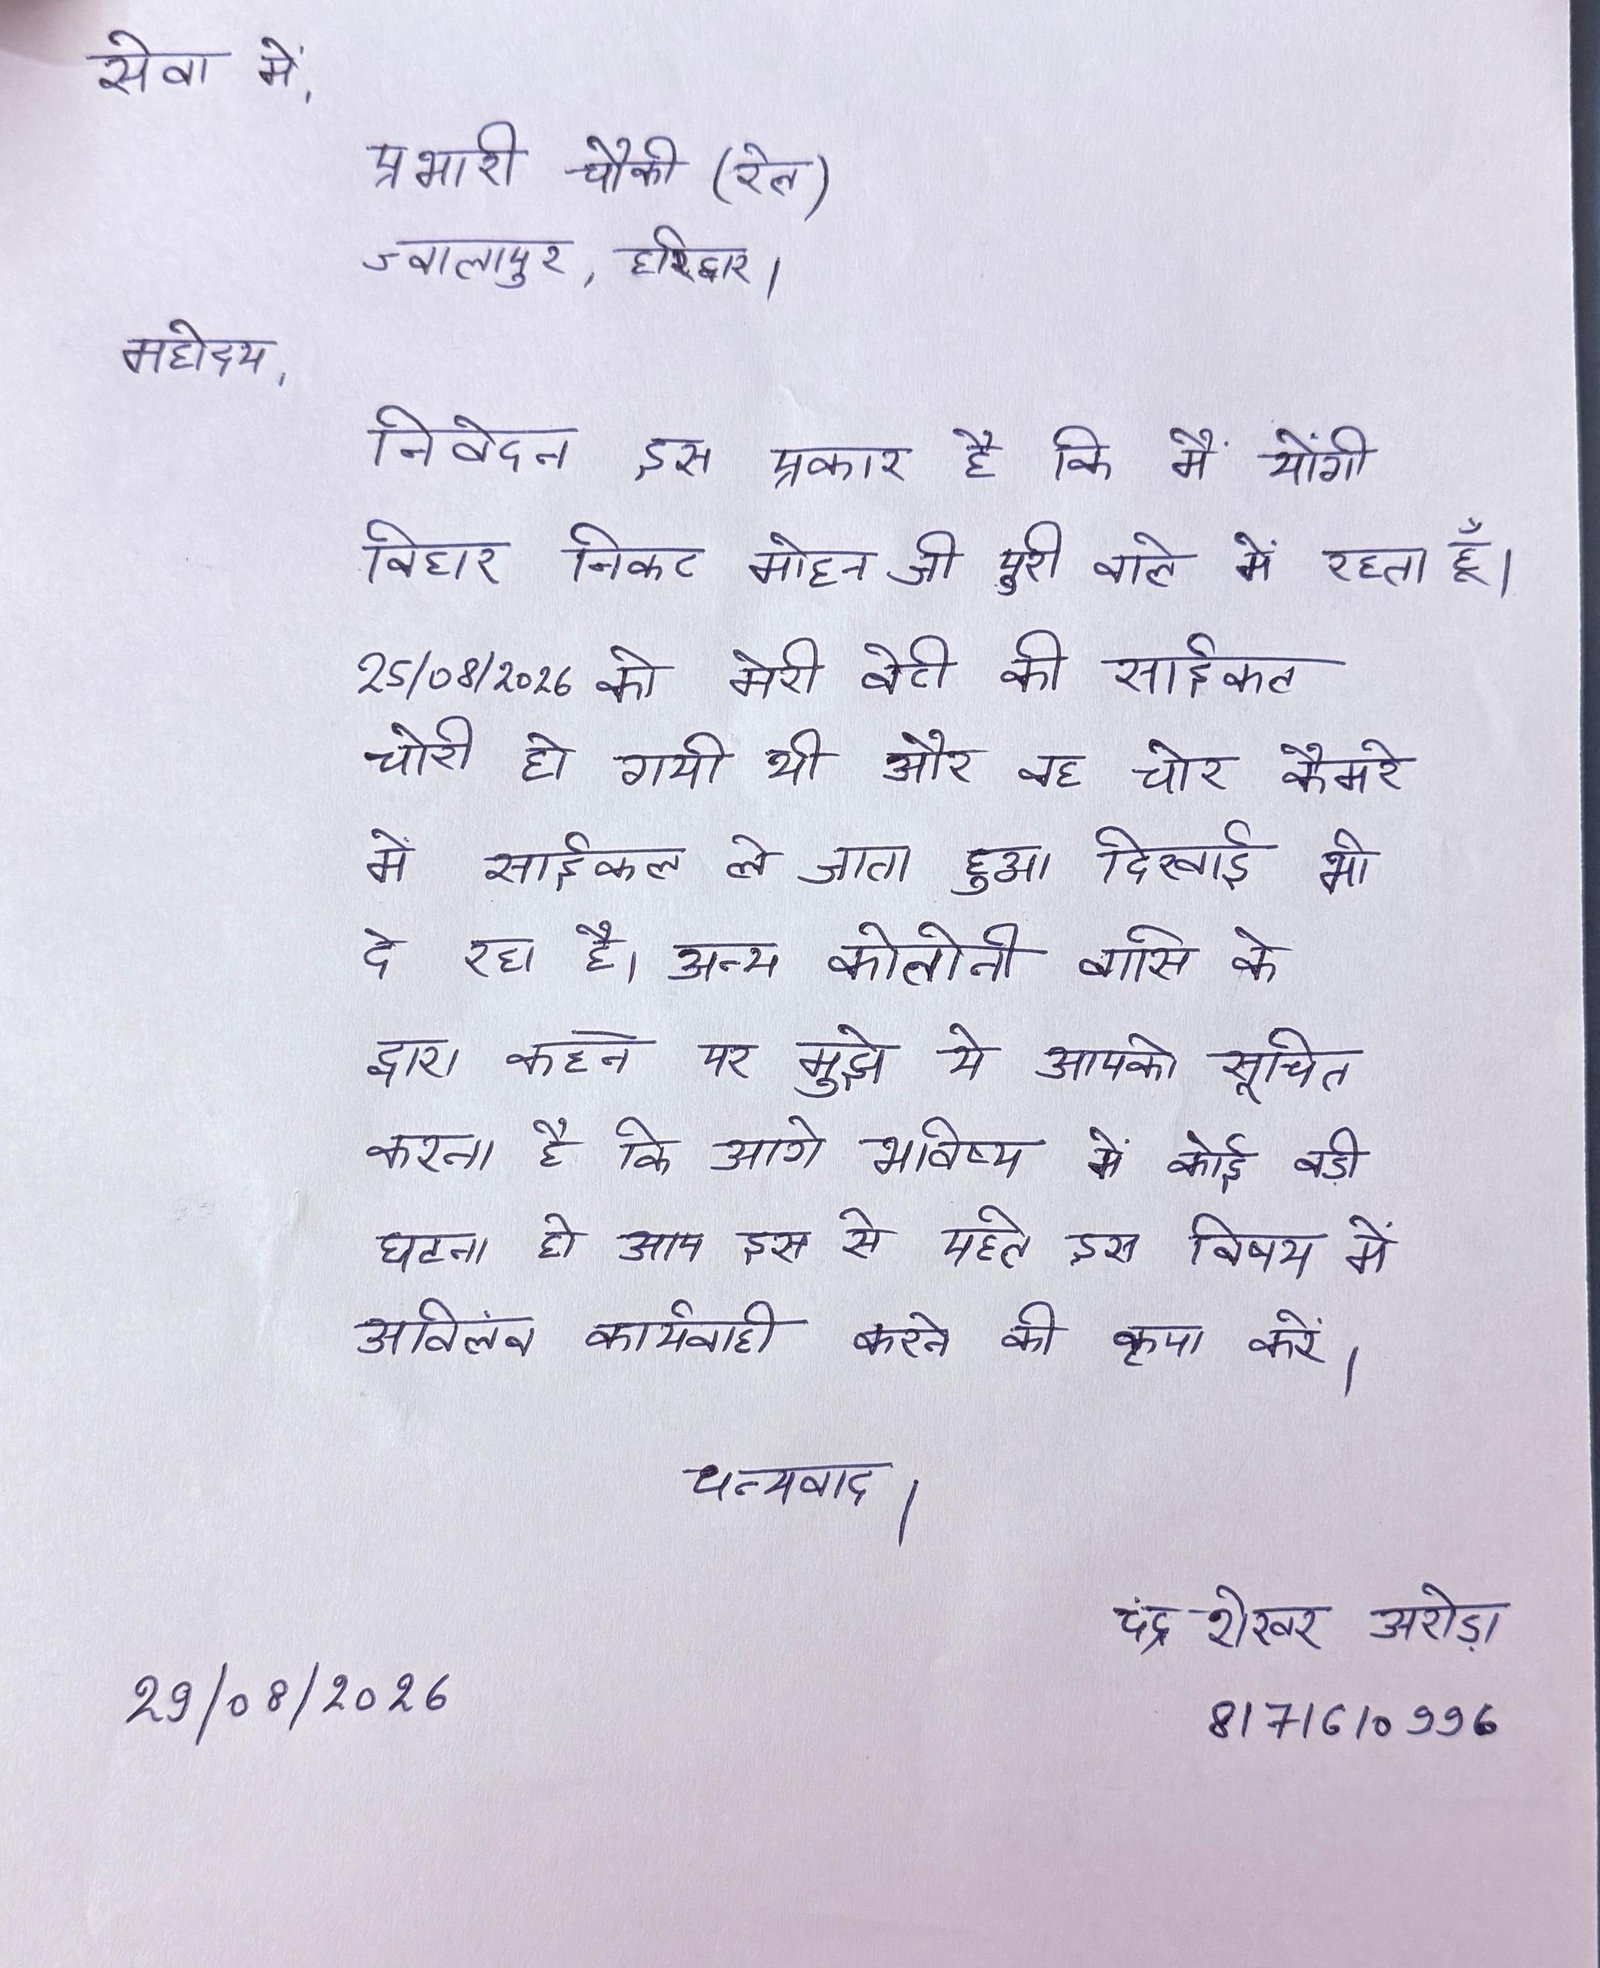 सेवा में,
प्रभारी चौकी (रेल)
ज्वालापुर, हरिद्वार।
महोदय,
निवेदन इस प्रकार है कि मैं योंगी
विहार निकट मोहन जी पुरी वाले में रहता हूँ।
25/08/2026 को मेरी बेटी की साईकल
चोरी हो गयी थी और वह चोर कैमरे
में साईकल ले जाता हुआ दिखाई भी
दे रहा है। अन्य कोलोनी वासि के
द्वारा कहने पर मुझे ये आपको सूचित
करना है कि आगे भविष्य में कोई बड़ी
घटना हो आप इस से पहले इस विषय में
अविलंब कार्यवाही करने की कृपा करें।
धन्यवाद।
चंद्र शेखर अरोड़ा
29/08/2026
8171610996